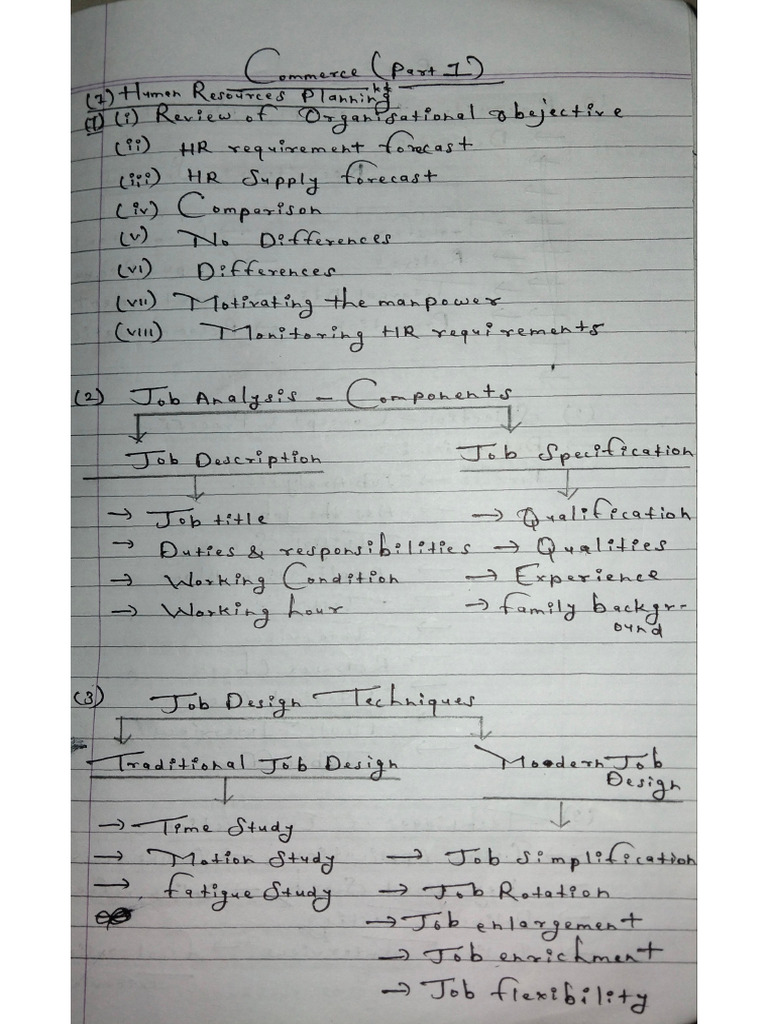 Commerce (Part 1)
(7) Human Resources Planning
(1) (i) Review of Organisational obejective
(ii) HR requirement forecast
(iii) HR Supply forecast
(iv) Comparison
(v) No Differences
(vi) Differences
(vii) Motivating the manpower
(viii) Monitoring HR requirements
(2) Job Analysis - Components
Job Description Job Specification
→ Job title → Qualification
→ Duties & responsibilities → Qualities
→ Working Condition → Experience
→ Working hour → family backgr-
ound
(3) Job Design Techniques
Traditional Job Design Moodern Job
Design
→ Time Study
→ Motion Study → Job simplification
→ fatigue Study → Job Rotation
→ Job enlargement
→ Job enrichment
→ Job flexibility